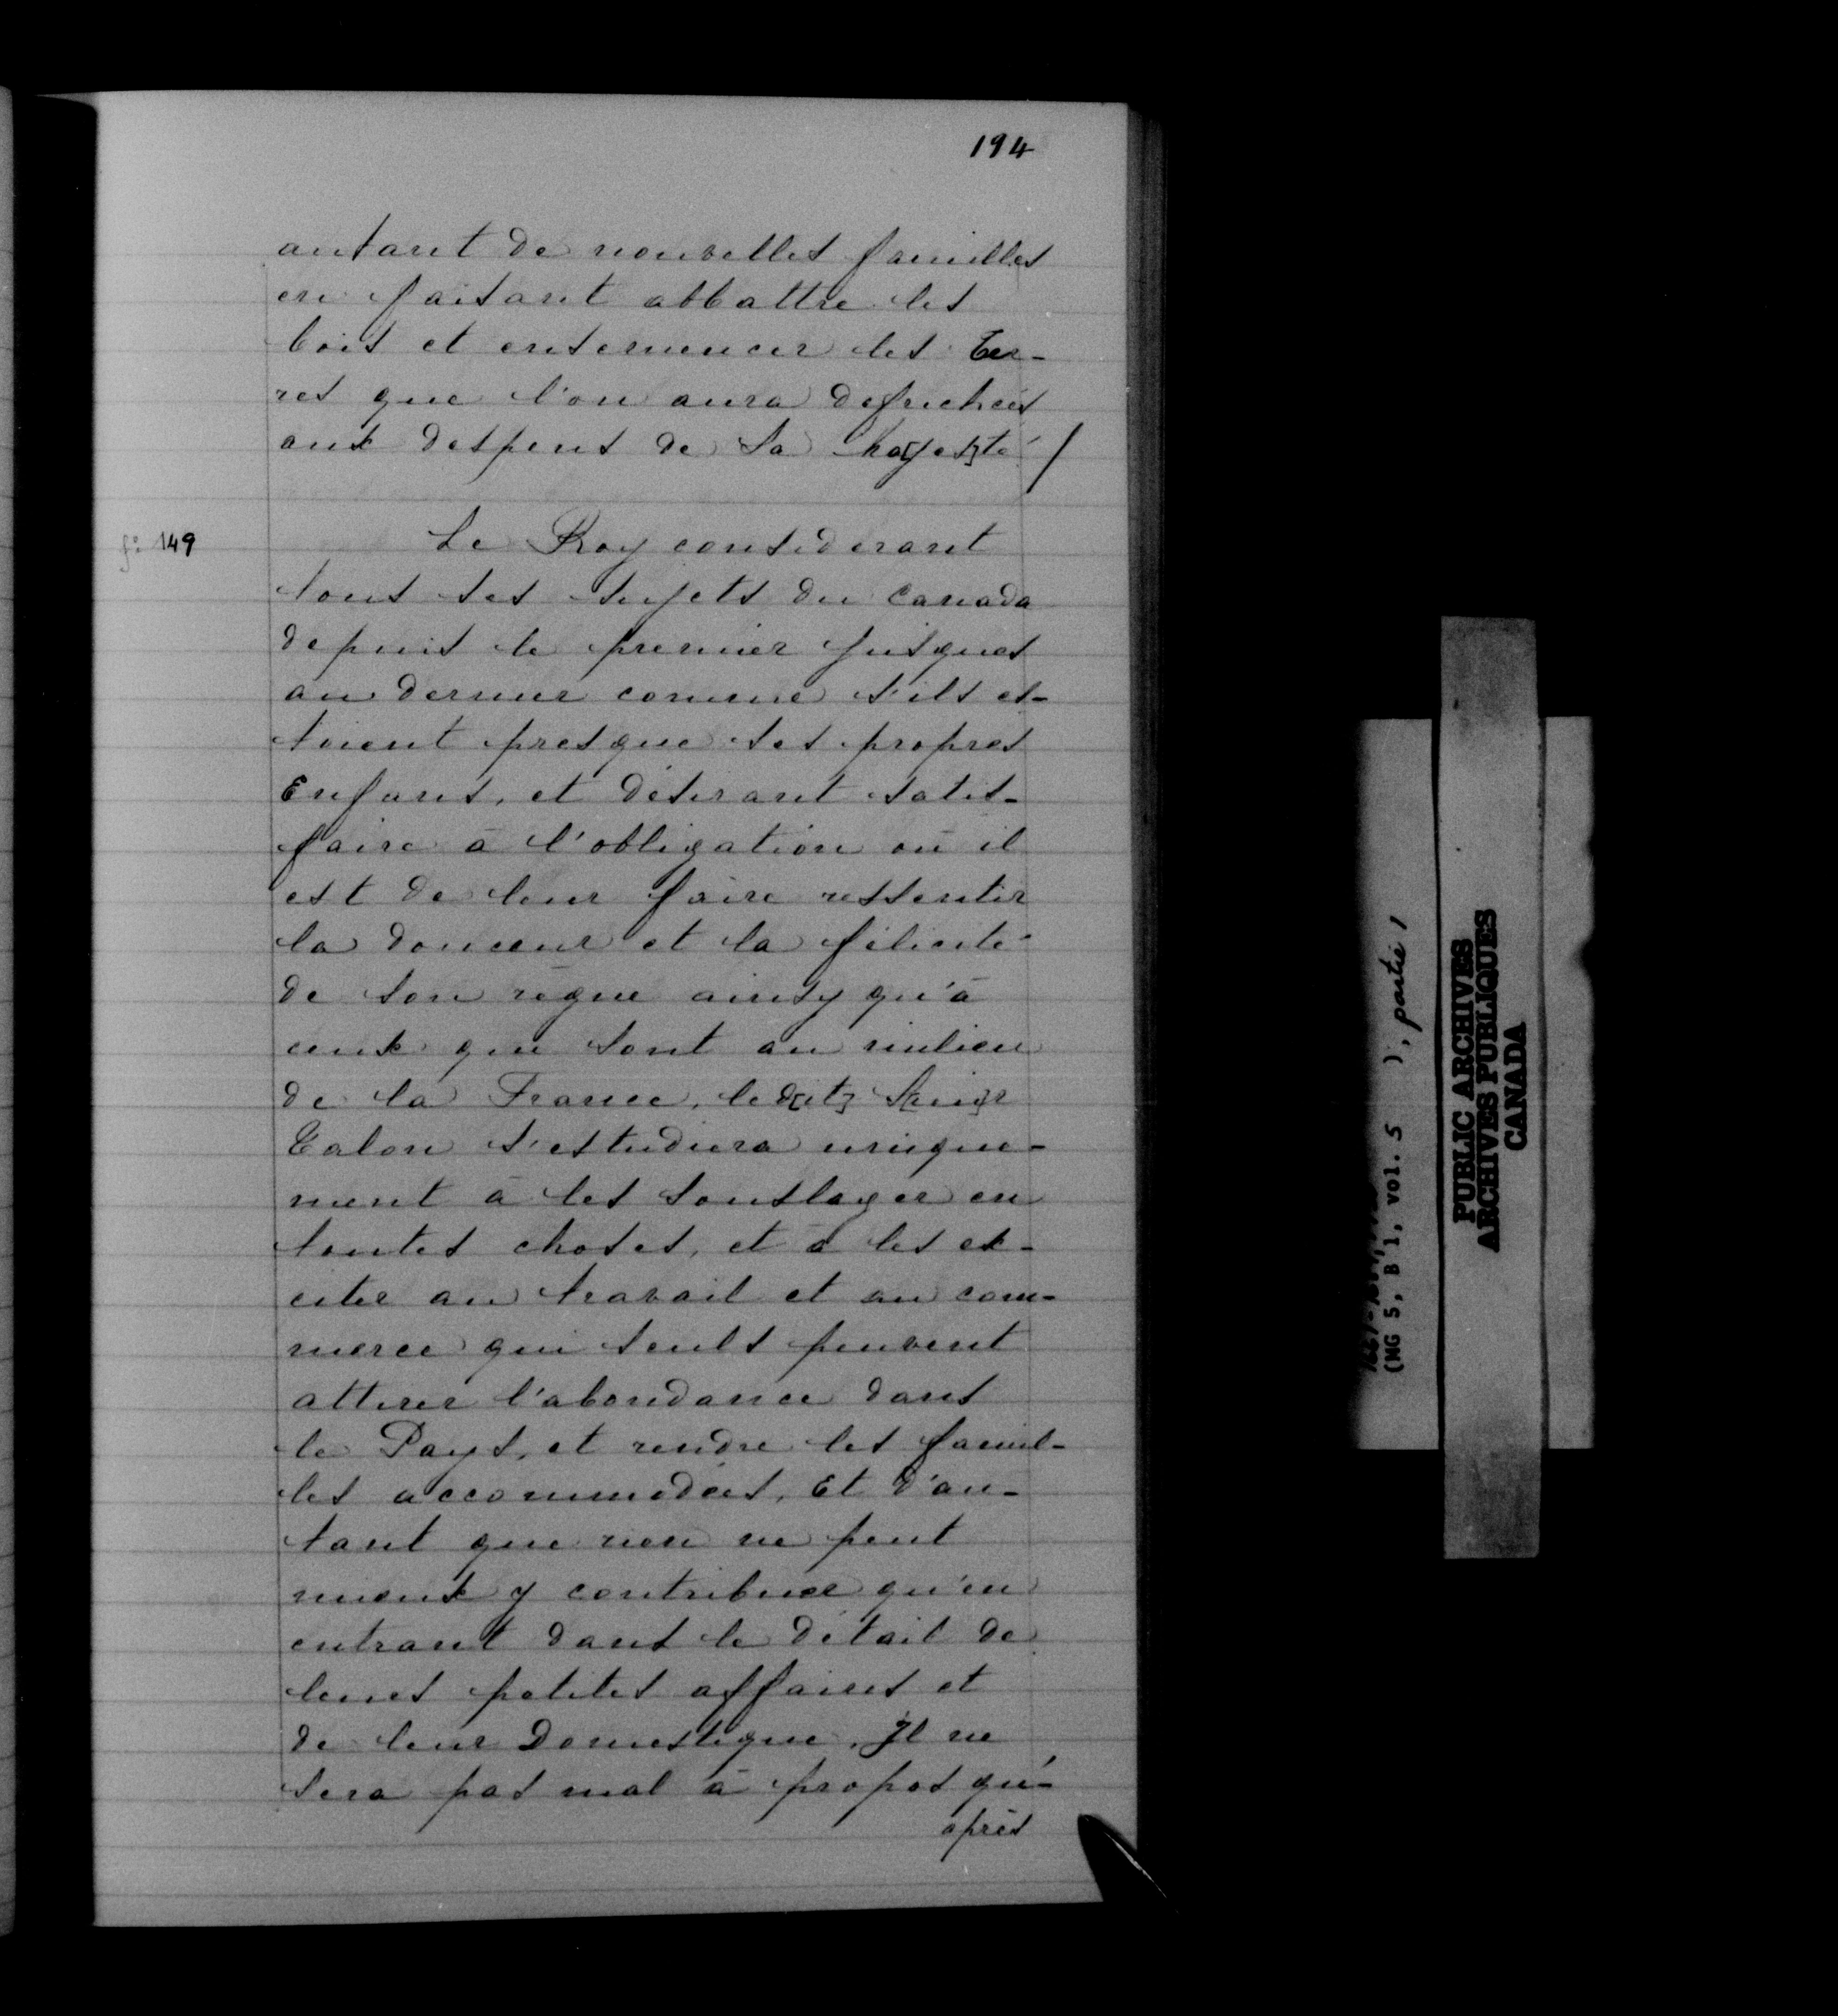 194
autant de nouvelles familles
en faisant abbattre les
bois et ensemencer les Ter-
res que l'on aura defrichées
aux despens de Sa Ma[jes]té /
f° 149
Le Roy considerant
tous ses sujets du Canada
depuis le premier jusques
au dernier comme s'ils es-
toient presque ses propres
Enfans, et désirant satis-
faire à l'obligation où il
est de leur faire ressentir
la douceur et la félicité
de son règne ainsy qu'à
ceux qui sont au milieu
de la France, led[it] S[ieu]r
Talon s'estudiera unique-
ment à les souslager en
toutes choses, et à les ex-
citer au travail et au com-
merce qui seuls peuvent
attirer l'abondance dans
le Pays, et rendre les famil-
les accommodées, Et d'au-
tant que rien ne peut
mieux y contribuer qu'en
entrant dans le détail de
leurs petites affaires et
de leur Domestique, Il ne
sera pas mal à propos qu'-
après
(MG 5, B 1, vol. 5 ), partie 1
PUBLIC ARCHIVES
ARCHIVES PUBLIQUES
CANADA